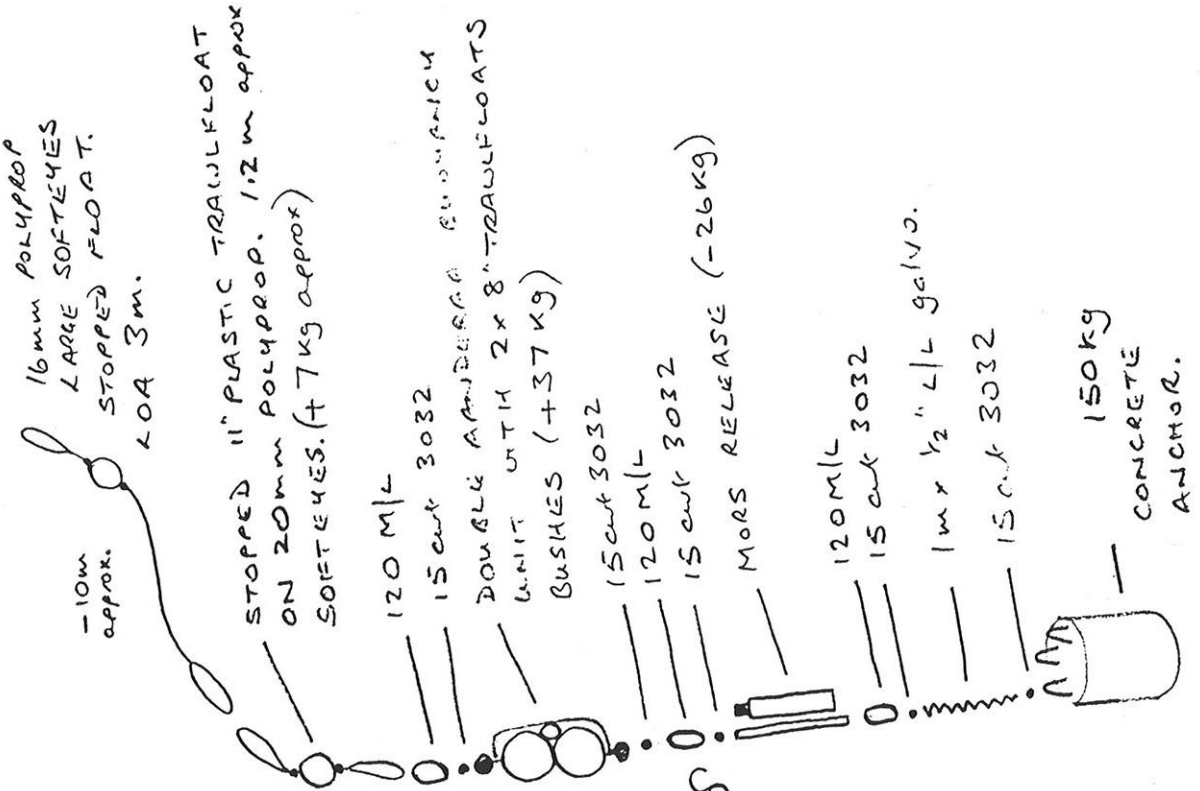 16mm POLYPROP
LARGE SOFTEYES
STOPPED FLOAT.
LOA 3m.
-10m
approx.
STOPPED 11" PLASTIC TRAWLFLOAT
ON 20mm POLYPROP. 1.2m approx
SOFTEYES. (+7 kg approx)
120 M/L
15 cwt 3032
DOUBLE
UNIT WITH 2 x 8" TRAWLFLOATS
BUSHES (+37 kg)
15 cwt 3032
120 M/L
15 cwt 3032
MORS RELEASE (-26kg)
120 M/L
15 cwt 3032
1m x 1/2" L/L galvo.
15 cwt 3032
150kg
CONCRETE
ANCHOR.